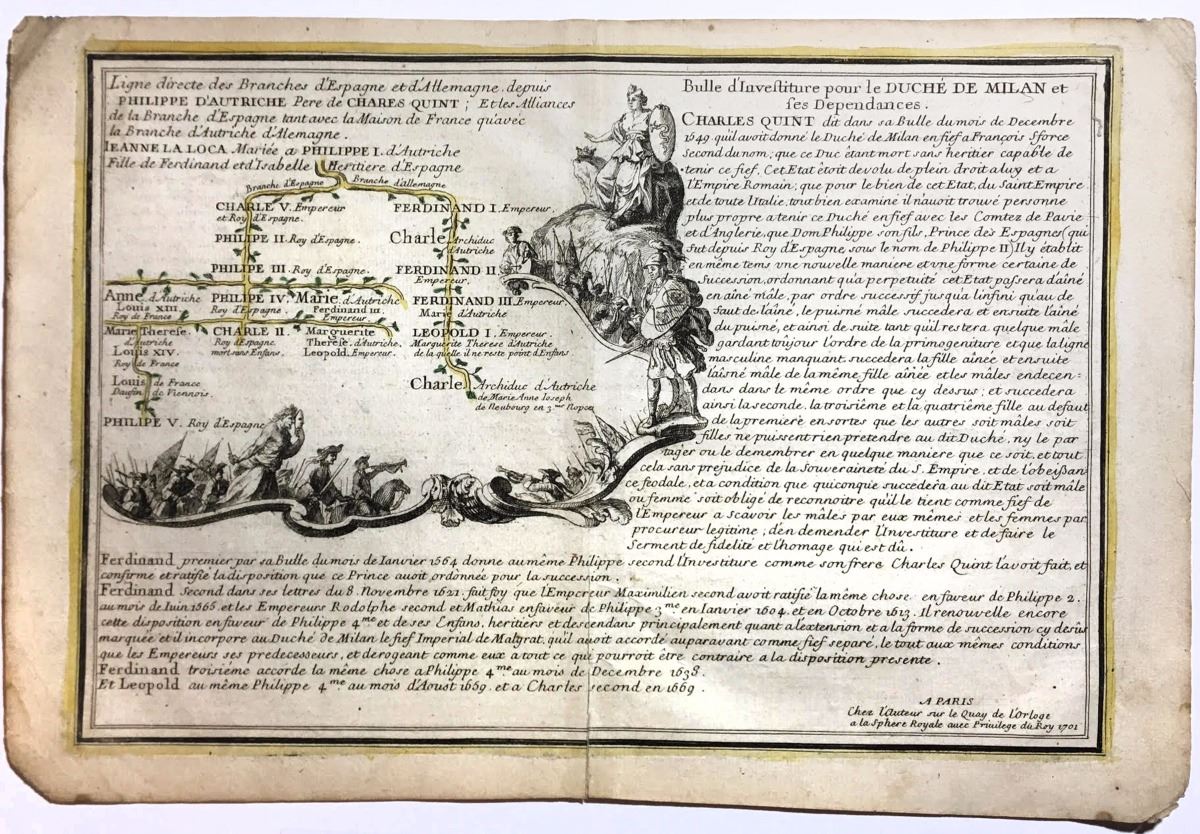 Ligne directe des Branches d'Espagne et d'Allemagne. depuis
PHILIPPE D'AUTRICHE Pere de CHARES QUINT ; Et les Alliances
de la Branche d'Espagne tant avec la Maison de France qu'avec
la Branche d'Autriche d'Alemagne.
IEANNE LA LOCA Mariée a PHILIPPE I. d'Autriche
Fille de Ferdinand et d'Isabelle Heritière d'Espagne
Branche d'Espagne Branche d'allemagne
CHARLE V. Empereur
et Roy d'Espagne.
FERDINAND I. Empereur.
PHILIPE II. Roy d'Espagne.
Charle Archiduc
d'Autriche
PHILIPE III. Roy d'Espagne.
FERDINAND II
Empereur.
Anne d'Autriche
Louis XIII.
Roy de France
PHILIPE IV.
Roy d'Espagne.
Marie d'Autriche
Ferdinand III.
Empereur.
FERDINAND III. Empereur.
Marie d'Autriche
Marie Therese.
d'Autriche
Louis XIV.
Roy de France
CHARLE II.
Roy d'Espagne
mort sans Enfans.
Marguerite
Therese d'Autriche
Leopold. Empereur.
LEOPOLD I. Empereur.
Marguerite Therese d'Autriche
de la quelle il ne reste point d'Enfans
Louis de France
Daufin de Viennois.
Charle. Archiduc d'Autriche
de Marie Anne Ioseph
de Neubourg en 3.mes Nopces
PHILIPE V. Roy d'Espagne
Bulle d'Investiture pour le DUCHÉ DE MILAN et
ses Dependances.
CHARLES QUINT dit dans sa Bulle du mois de Decembre
1549 qu'il avoit donné le Duché de Milan en fief a François Sforce
Second du nom; que ce Duc êtant mort sans heritier capable de
tenir ce fief, Cet Etat êtoit devolu de plein droit a luy et a
l'Empire Romain; que pour le bien de cet Etat, du Saint Empire
et de toute l'Italie, tout bien examiné il n'auoit trouvé personne
plus propre a tenir ce Duché en fief avec les Comtez de Pavie
et d'Anglerie, que Dom Philippe son fils, Prince des Espagnes (qui
fut depuis Roy d'Espagne, sous le nom de Philippe II) Il y êtablit
en même tems vne nouvelle maniere et vne forme certaine de
Succession, ordonnant qu'a perpetuité cet Etat passera d'aîné
en aîné mâle, par ordre successif jusqu'a l'infini qu'au de
faut de l'aîné, le puisné mâle succedera et ensuite l'ainé
du puisné, et ainsi de suite tant qu'il restera quelque mâle
gardant toûjour l'ordre de la primogeniture et que la ligne
masculine manquant, succedera la fille aînée et ensuite
l'aîsné mâle de la même fille aînée et les mâles endecen=
dans dans le même ordre que cy dessus; et succedera
ainsi la seconde, la troisiême et la quatriême fille au defaut
de la premiere en sortes que les autres soit mâles soit
filles ne puissent rien pretendre au dit Duché, ny le par
tager ou le demembrer en quelque maniere que ce soit, et tout
cela sans prejudice de la Souveraineté du S. Empire, et de l'obeißan
ce feodale, et a condition que quiconque succedera au dit Etat soit mâle
ou femme soit obligé de reconnoitre qu'il le tient comme fief de
l'Empereur a Scavoir les mâles par eux mêmes et les femmes par
procureur legitime; d'en demender l'Investiture et de faire le
Serment de fidelité et l'homage qui est dû.
Ferdinand premier par sa Bulle du mois de Ianvier 1564 donne au même Philippe second l'Investiture comme son frere Charles Quint l'avoit fait, et
confirme et ratifie la disposition que ce Prince auoit ordonnée pour la succession.
Ferdinand Second dans ses lettres du 8. Novembre 1621. fait foy que l'Empereur Maximilien second avoit ratifié la même chose en faveur de Philippe 2.
au mois de Iuin 1565. et les Empereurs Rodolphe second et Mathias en faveur de Philippe 3.me en Ianvier 1604. et en Octobre 1613. Il renouvelle encore
cette disposition en faveur de Philippe 4.me et de ses Enfans, heritiers et descendans principalement quant a l'extension et a la forme de succession cy desûs
marquée et il incorpore au Duché De Milan le fief Imperial de Malgrat, qu'il auoit accordé auparavant comme fief separé, le tout aux mêmes conditions
que les Empereurs ses predecesseurs, et derogeant comme eux a tout ce qui pourroit être contraire a la disposition presente.
Ferdinand troisiéme accorde la même chose a Philippe 4.me au mois de Decembre 1638.
Et Leopold au même Philippe 4.me au mois d'Aoust 1659. et a Charles second en 1669.
A PARIS
Chez l'Auteur sur le Quay de l'Orloge
a la Sphere Royale avec Privilege du Roy 1701